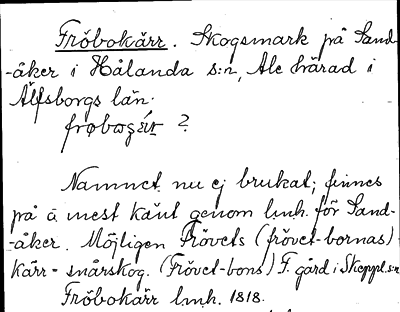 Fröbokärr. Skogsmark på Sand-
-åker i Hålanda s:n, Ale härad i
Älfsborgs län.
frøbosǥär ?
Namnet nu ej brukat; finnes
på ä mest känt genom lmh. för Sand-
-åker. Möjligen Frövets (frövet-bornas)
kärr - snårskog. (Frövet-bons) F. gård i Skeppl. s:n
Fröbokärr lmh. 1818.